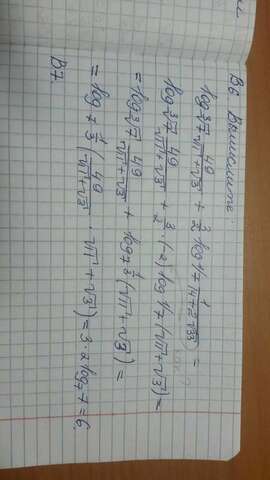 В6 Вычислите:
log∛7 49/(√11+√3) + 3/2 log1/7 1/(14+2√33) =
log∛7 49/(√11+√3) + 3/2 · (-2) log1/7 (√11+√3) =
= log∛7 49/(√11+√3) + log7^1/3 (√11+√3) =
= log7^1/3 (49/(√11+√3) · √11+√3) = 3·2 log₇7 = 6.
В7.